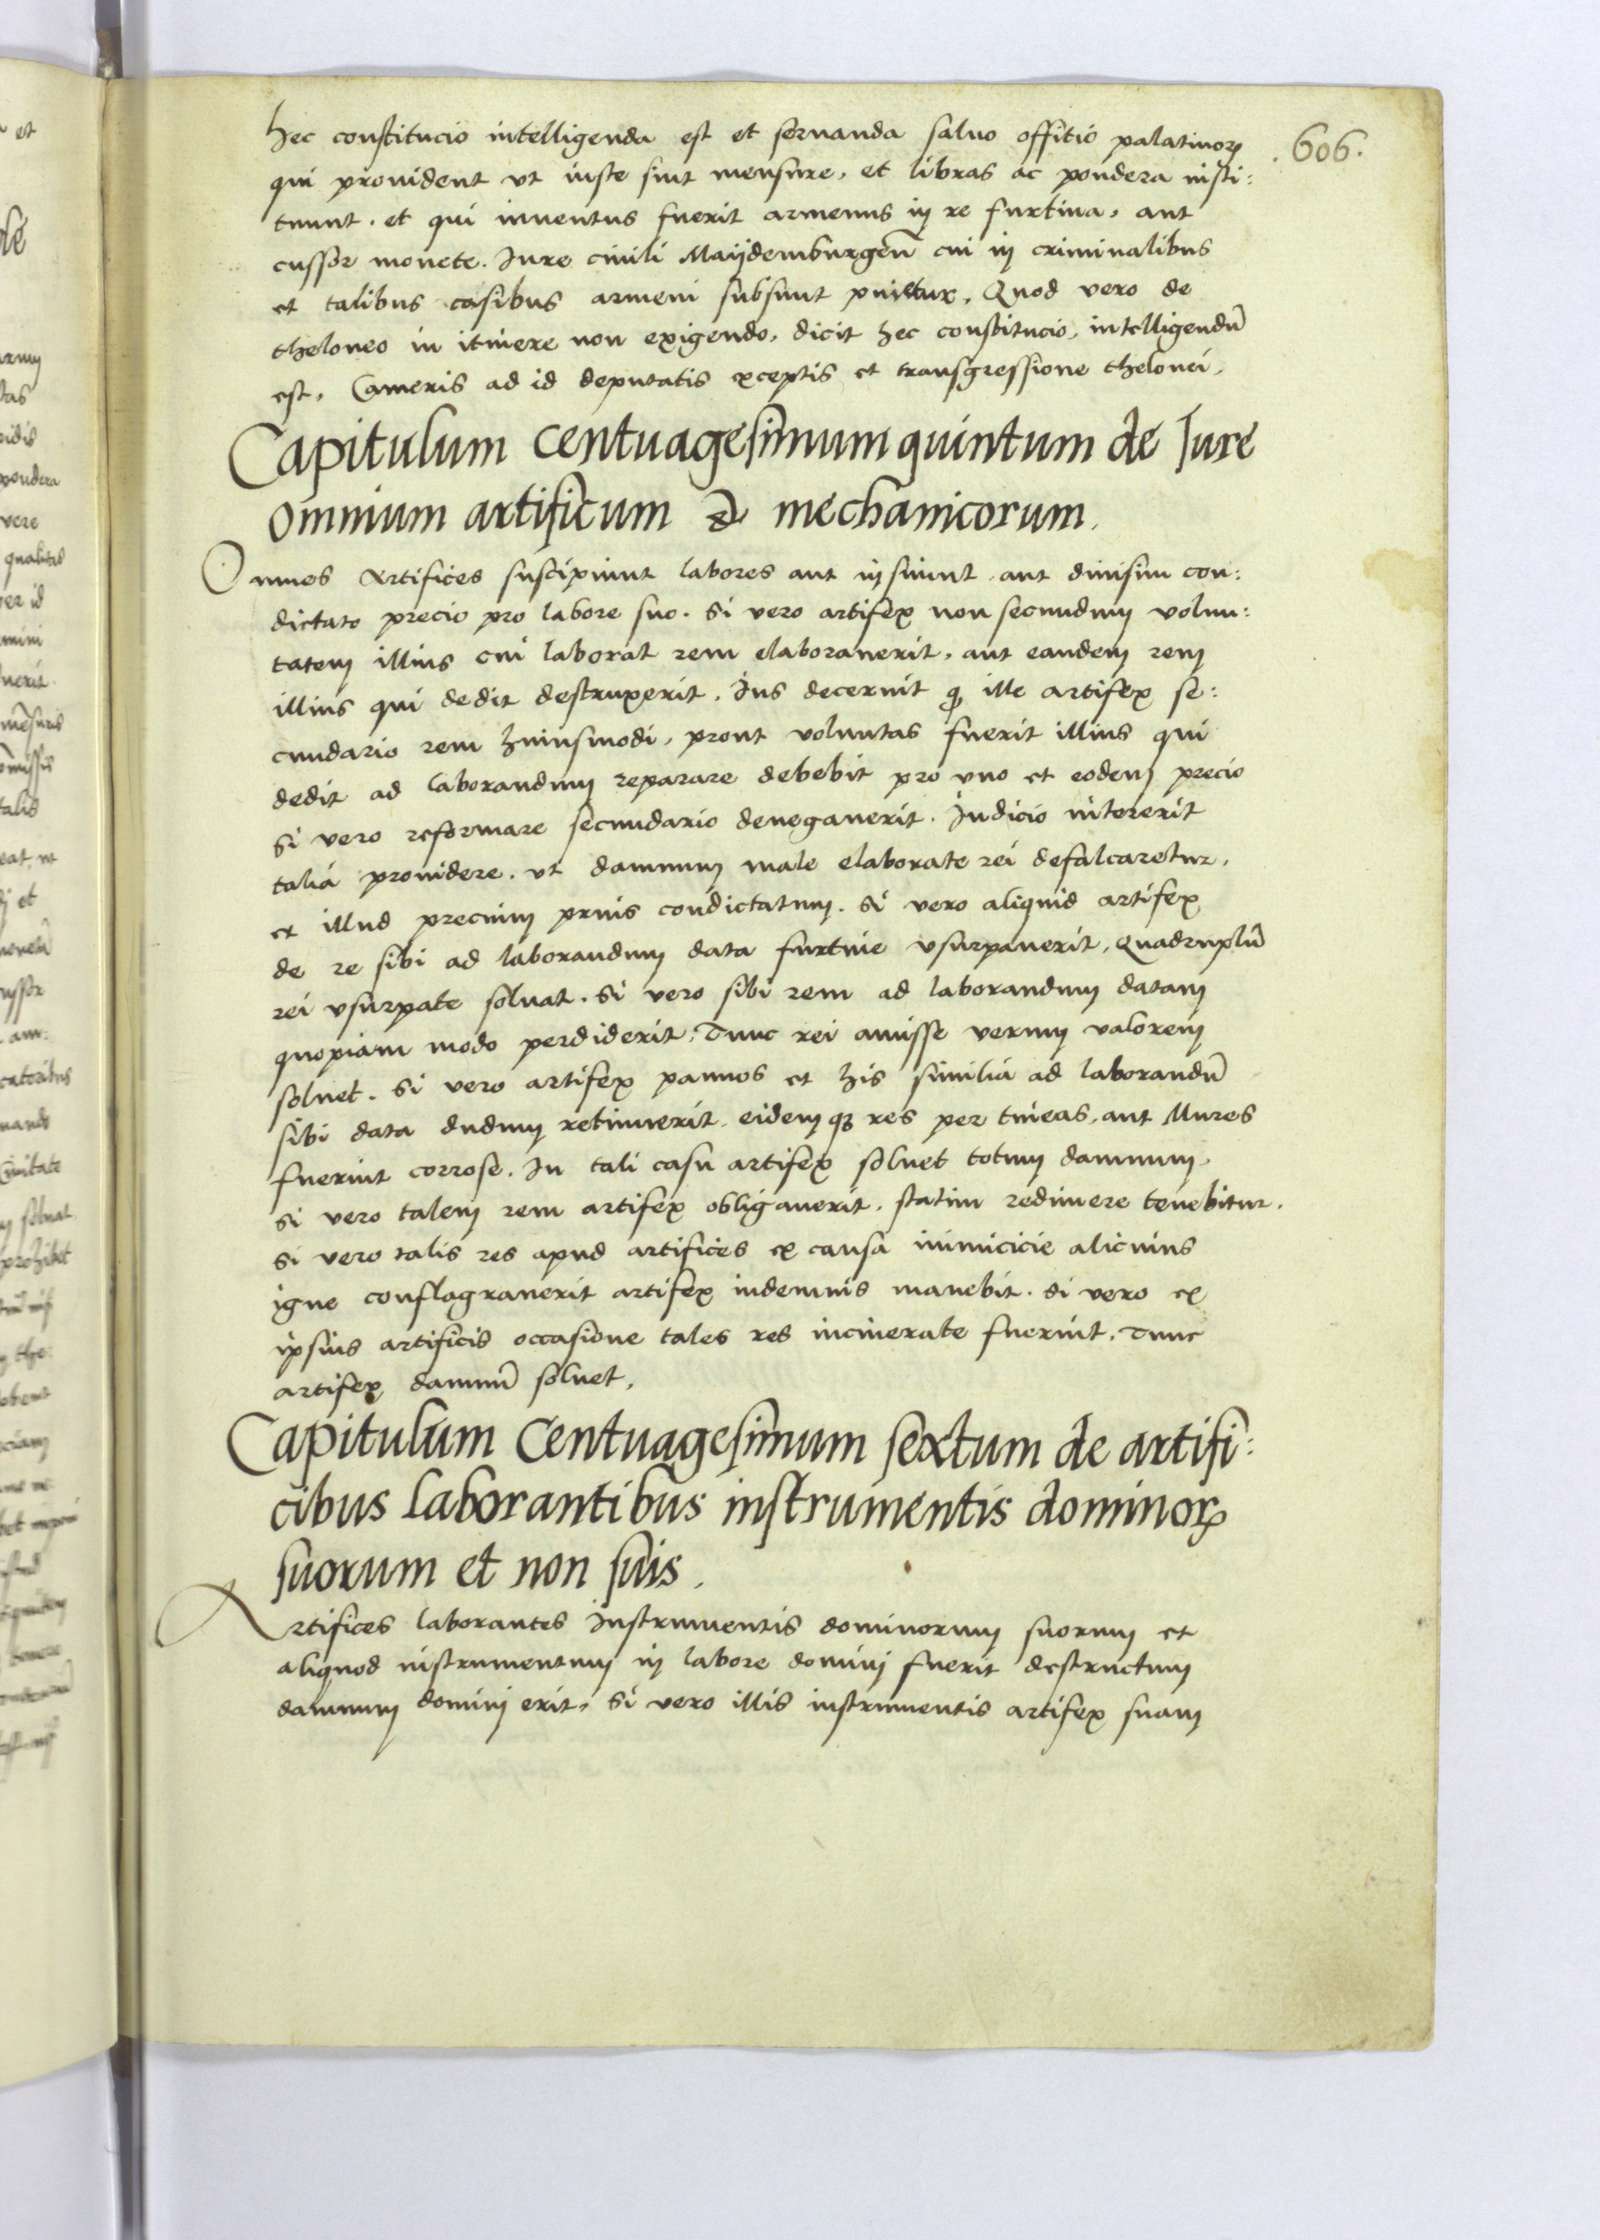 .606.
hec constitucio intelligenda est et seruanda saluo offitio palatinoꝝ
qui prouident vt iuste sint mensure, et libras ac pondera insti:
tuunt. et qui inuentus fuerit armenus in re furtiua, aut
cussor monete. Iure ciuili Maijdemburgeñ cui in criminalibus
et talibus casibus armeni subsunt puniẽtur, Quod vero de
theloneo in itinere non exigendo, dicit hec constitucio, intelligendũ
est, Cameris ad id deputatis exceptis et transgressione thelonei,
Capitulum centuagesimum quintum de Iure
omnium artificum & mechanicorum,
Omnes Artifices suscipiunt labores aut in simul, aut diuisim con:
dictato precio pro labore suo. Si vero artifex non secundum volun:
tatem illius cui laborat rem elaborauerit, aut eandem rem
illius qui dedit destruxerit, Ius decernit ꝙ ille artifex se:
cundario rem huiusmodi, prout voluntas fuerit illius qui
dedit ad laborandum reparare debebit pro vno et eodem precio
Si vero reformare secundario denegauerit. Iudicio intererit
talia prouidere. vt damnum male elaborate rei defalcaretur,
et illud precium prius condictatum. Si vero aliquid artifex
de re sibi ad laborandum data furtiue vsurpauerit, Quadruplũ
rei vsurpate soluat. Si vero sibi rem ad laborandum datam
quopiam modo perdiderit: Tunc rei amisse verum valorem
soluet. Si vero artifex pannos et his similia ad laborandũ
sibi data dudum retinuerit, eidemqꝫ res per tineas, aut Mures
fuerint corrose. In tali casu artifex soluet totum damnum,
Si vero talem rem artifex obligauerit, statim redimere tenebitur.
Si vero talis res apud artifices ex causa inimicicie alicuius
igne conflagrauerit artifex indemnis manebit. Si vero ex
ipsius artificis occasione tales res incinerate fuerint, Tunc
artifex damnũ soluet,
Capitulum Centuagesimum sextum de artifi:
cibus laborantibus instrumentis dominoꝝ
suorum et non suis,
Artifices laborantes Instrumentis dominorum suorum et
aliquod instrumentum in labore domini fuerit destructum
damnum domini erit, Si vero illis instrumentis artifex suam